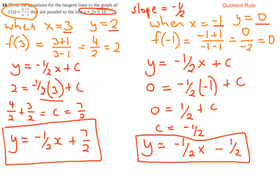 Quotient Rule
10. Write the equations of the tangent lines to the graph of
f(x) = (x+1)/(x-1) that are parallel to the line x + 2y = 10.
slope = -1/2
when x = 3 y = 2
f(3) = (3+1)/(3-1) = 4/2 = 2
y = -1/2x + C
2 = -1/2(3) + C
4/2 + 3/2 = C = 7/2
y = -1/2x + 7/2
when x = -1 y = 0
f(-1) = (-1+1)/(-1-1) = 0/-2 = 0
y = -1/2x + C
0 = -1/2(-1) + C
0 = 1/2 + C
C = -1/2
y = -1/2x - 1/2